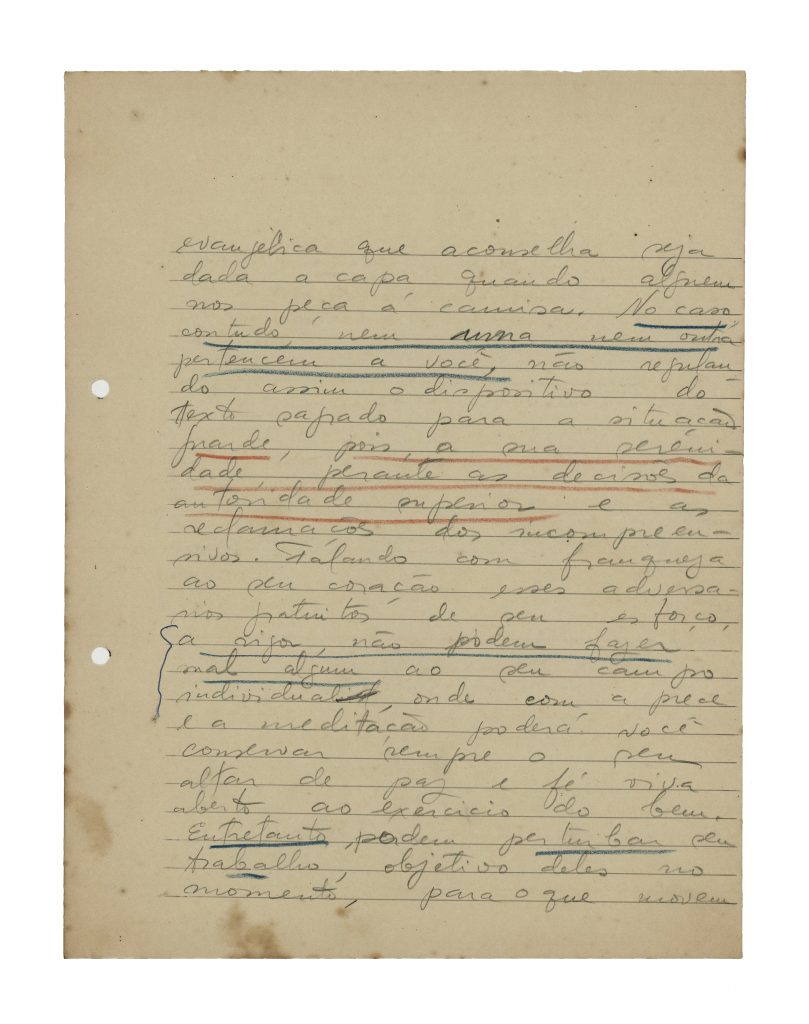 evangélica que aconselha seja
dada a capa quando alguem
nos peça á camisa. No caso
contudo, nem uma nem outra
pertencem a você, não regulan-
do assim o dispositivo do
texto sagrado para a situação
grande, pois, a sua sereni-
dade, perante as decisões da
autoridade superior e as
reclamações dos incompreen-
sivos. Falando com franqueza
ao seu coração esses adversa-
rios gratuitos de seu esforço,
a rigor, não podem fazer
mal algum ao seu campo
individual onde com a prece
e a meditação poderá você
conservar sempre o seu
altar de paz e fé viva
aberto ao exercicio do bem.
Entretanto, podem perturbar seu
trabalho, objetivo deles no
momento, para o que movem